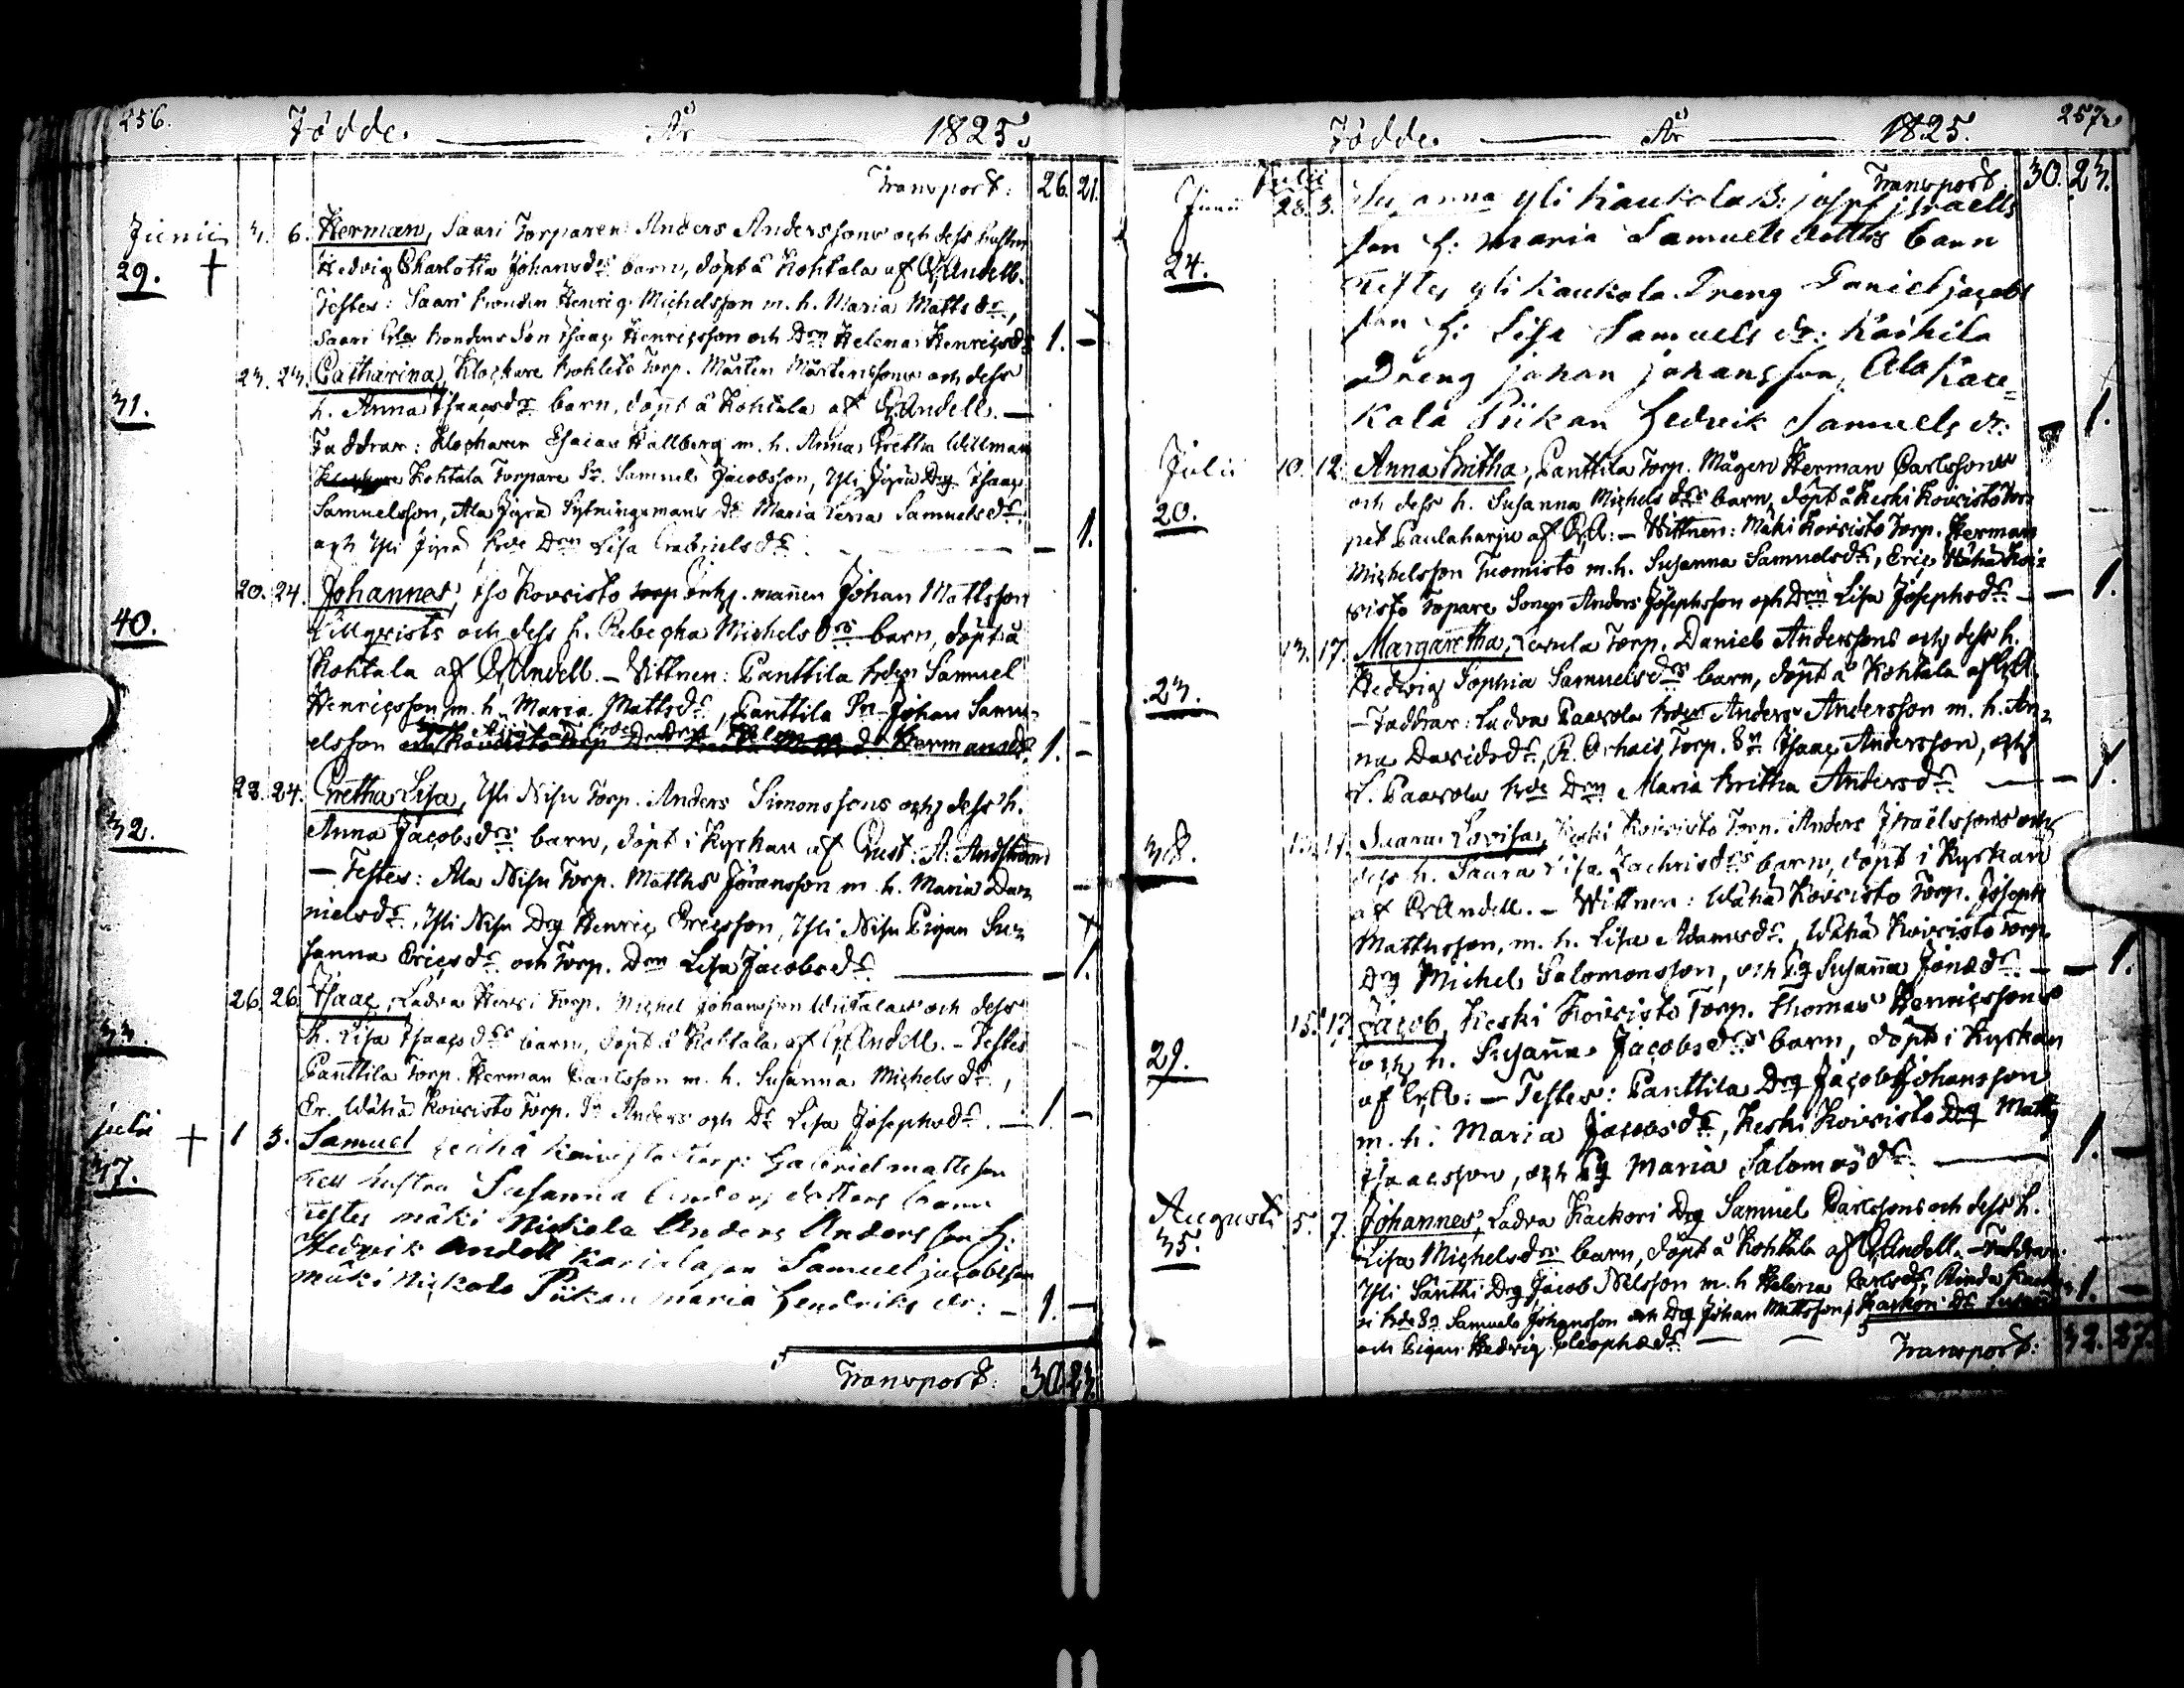 256. Födde. År 1825.
Transport: 26. 21.
Junii 3. 6. Herman, Saari Torparen Anders Anderssons och dess hustru
29. † Hedvig Charlotta Johansdrs barn, döpt å Kohtala af C. Andell.
Testes: Saari bonden Henric Michelsson m. h. Maria Matts dr,
Saari bondens Son Isaac Henricsson och Drn Helena Henricsdr 1. –
23. 23. Catharina, Klockare bohlets Torp. Mårten Mårtenssons och dess
31. h. Anna Isaacsdrs barn, döpt å Kohtala af C. Andell. –
Faddrar: Klockaren Esaias Hallberg m. h. Anna Gretha Willman
Kohtala Torpare Sn. Samuel Jacobsson, Yli Jyrä Drg Isaac
Samuelsson, Ala Jyrä Sytningsmans Dr Maria Samuelsdr.
och Yli Jyrä Drn Lisa Gabrielsdr – 1.
20. 24. Johannes, Iso Koivisto inhs. mannen Johan Mattsson
40. Lillqvists och dess h. Rebecka Michelsdrs barn, döpt å
Kohtala af C. Andell. – Vittnen: Panttila bden Samuel
Henricsson m. h. Maria Mattsdr, Panttila Sn Johan Samu-
elsson Hermansdr. 1. –
23. 24. Gretha Lisa, Yli Nisu Torp. Anders Simonssons och dess h.
32. Anna Jacobsdrs barn, döpt i Kyrkan af
– Testes: Ala Nisu Torp. Matths Göransson m. h. Maria Da-
nielsdr, Yli Nisu Drg Henric Ericsson, Yli Nisu Pigan Su-
sanna Ericsdr. och Torp. Drn Lisa Jacobsdr. – 1.
26. 26. Isaac, Ladva Torp. Michel Johansson Wiitalas och dess
33. h. Lisa Isaacsdrs barn, döpt å Kohtala af C. Andell. – Testes
Panttila Torp. Herman Carlsson m. h. Susanna Michelsdr,
Wähä Koivisto Torp. Sn Anders och Dr Lisa Josephsdr. – 1. –
julii † 1 3. Samuel wähä koivisto torp: Gabriel mattsson
37. hustru Susanna Anders dotters barn
testes mäki Nickola Anders Andersson h:
Hedvik Andell Samuel jacobsson
mäki Nickola Piikan maria hendriks dr: – 1. –
Transport: 30. 23.
257.
Födde. År 1825.
Transport 30. 23.
Junii Julii 28. 3. Susanna yli kaukola B: josef israells
24. son h: maria Samuels dotters barn
testes yli kaukola Dreng Daniel jacobs
son h: Lisa Samuels dr:
Dreng johan johansson, Ala Kau-
kola Piikan hedvik Samuels dr: – 1.
Julii 10. 12. Anna Britha, Panttila Torp. Mågen Herman Carlssons
20. och dess h. Susanna Michels drs barn, döpt å Keski Koivisto Tor-
pet Paulaharju af C. A: – Wittnen: Mäki Koivisto Torp. Herman
Michelsson Tuomisto m. h. Susanna Samuelsdr, Wähä Koi-
visto Torpare Anders Josephsson och Drn Lisa Josephsdr. – 1.
13. 17. Margaretha, Torp. Daniel Anderssons och dess h.
23. Hedwig Sophia Samuelsdrs barn, döpt å Kohtala af C. A.
– Faddrar: Ladva Paavola bden Anders Andersson m. h. An-
na Davidsdr, Torp. Sn Isaac Andersson, och
L. Paavola bde Drn Maria Britha Andersdr. – 1.
Lovisa, Keski Koivisto Torp. Anders Israëlssons och
38. dess h. Lisa Zachrisdrs barn, döpt i Kyrkan
af C. Andell. – Wittnen: Wähä Koivisto Torp. Joseph
Mattsson, m. h. Lisa Adamsdr., Wähä Koivisto Torp.
Drg Michel Salomonsson, och Pg Susanna Jonædr. – 1.
15. 17. Jacob, Keski Koivisto Torp. Thomas Henricssons
29. och h. Susanna Jacobsdrs barn, döpt i Kyrkan
af C. A: – Testes: Panttila Drg Jacob Johansson
m. h. Maria Jacobsdr, Keski Koivisto Drg Matts
Isaacsson, och Pg Maria Salomosdr. – 1. –
Augusti 5. 7. Johannes, Ladva Kackori Drg Samuel Carlssons och dess h.
35. Lisa Michelsdrs barn, döpt å Kohtala af C. Andell. – Faddrar:
Yli Säntti Drg Jacob Nilsson m. h. Helena Carlsdr, 1. –
Samuel Johansson och Drg Johan Mattsson,
och Pigan Hedvig Cleophædr. –
Transport: 32. 27.